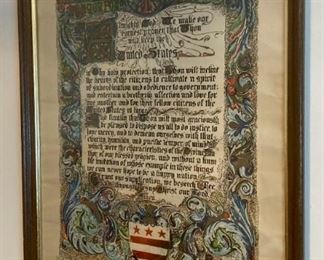 Almighty God: We make our
earnest prayer that Thou
wilt keep the
United States
in Thy holy protection, that Thou wilt incline
the hearts of the citizens to cultivate a spirit
of subordination and obedience to government:
and entertain a brotherly affection and love for
one another and for their fellow citizens of the
United States at large.
And finally that Thou wilt most graciously
be pleased to dispose us all to do justice, to
love mercy, and to demean ourselves with that
charity, humility, and pacific temper of mind
which were the characteristics of the Divine
of our blessed religion, and without a humble
imitation of whose example in these things
we can never hope to be a happy nation.
Grant our supplication, we beseech Thee
through Jesus Christ our Lord.